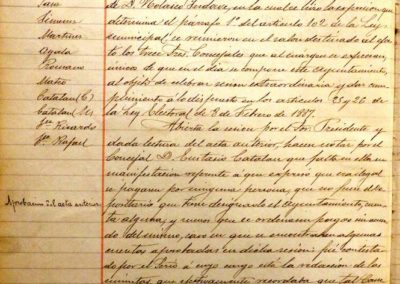 Sanz
Simeon
Martinez
Ayala
Romano
Mateo
Catalan (C)
Catalan (E)
Ricardo
Rafael
Aprobacion del acta anterior
D. Nolasco Londava, en la cual
determina el párrafo 1º del artículo 10º de la Ley
municipal, se reunieron en el salon destinado al efec-
to los trece Sres. Concejales que al margen se expresan,
únicos de que en el dia se compone este Ayuntamiento,
al objeto de celebrar sesion extraordinaria y dar cum-
plimiento á lo dispuesto en los articulos 25 y 26 de
la Ley Electoral de 8 de Febrero de 1887.
Abierta la sesion por el Sor. Presidente y
dada lectura del acta anterior, hacen constar por el
Concejal D. Eustasio Catalan que falta en ella su
manifestacion referente á que expresó que era ilegal
se pagara por ninguna persona, que no fuese depo-
sitario que tiene designado el Ayuntamiento, cuen-
ta alguna; y menos que se ordenaran pagos
del mismo, caso en que se encontraban algunas
cuentas aprobadas en dicha sesion: fué contesta-
do por el Srio á cuyo cargo está la redaccion de las
minutas, que efectivamente recordaba que tal